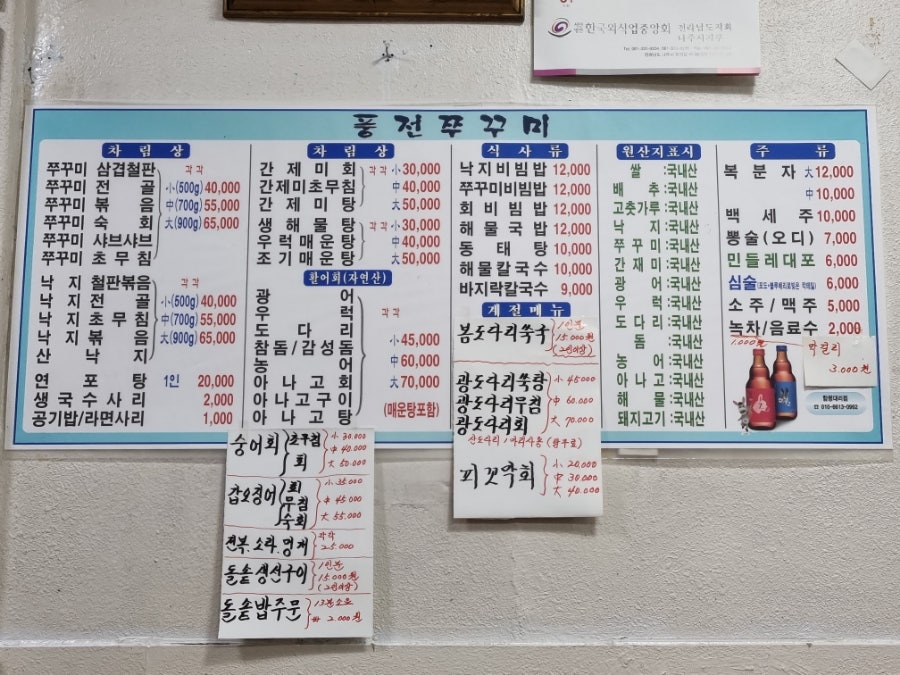 한국외식업중앙회 전라남도지회
나주시지부
풍전쭈꾸미
차림상
쭈꾸미 삼겹철판 각각
쭈꾸미 전골 小(500g) 40,000
쭈꾸미 볶음 中(700g) 55,000
쭈꾸미 숙회 大(900g) 65,000
쭈꾸미 샤브샤브
쭈꾸미 초무침
낙지 철판볶음 각각
낙지 전골 小(500g) 40,000
낙지 초무침 中(700g) 55,000
낙지 볶음 大(900g) 65,000
산낙지
연포탕 1인 20,000
생국수사리 2,000
공기밥/라면사리 1,000
차림상
간제미회 각각 小 30,000
간제미초무침 中 40,000
간제미탕 大 50,000
생해물탕 각각 小 30,000
우럭매운탕 中 40,000
조기매운탕 大 50,000
활어회(자연산)
광어 각각
우럭
도다리 小 45,000
참돔/감성돔
농어 中 60,000
아나고회 大 70,000
아나고구이
아나고탕 (매운탕포함)
식사류
낙지비빔밥 12,000
쭈꾸미비빔밥 12,000
회비빔밥 12,000
해물국밥 12,000
동태탕 10,000
해물칼국수 10,000
바지락칼국수 9,000
계절메뉴
봄도다리쑥국 1인분
15,000원
(2인이상)
광도다리쑥탕 小 45000
광도다리무침 中 60.000
광도다리회 大 70.000
피꼬막회 小 20.000
中 30.000
大 40.000
원산지표시
쌀:국내산
배추:국내산
고춧가루:국내산
낙지:국내산
쭈꾸미:국내산
간재미:국내산
광어:국내산
우럭:국내산
도다리:국내산
돔:국내산
농어:국내산
아나고:국내산
해물:국내산
돼지고기:국내산
주류
복분자 大 12,000
中 10,000
백세주 10,000
뽕술(오디) 7,000
민들레대포 6,000
심술 6,000
소주/맥주 5,000
녹차/음료수 2,000
1.000원
막걸리
3.000원
함평대리점
010-6613-0962
숭어회 초무침 小 30.000
회 中 40.000
大 50.000
갑오징어 회 小 35.000
무침 中 45.000
숙회 大 55.000
전복.소라.멍게 각각
25.000
돌솥생선구이 1인분
15.000원
(2인이상)
돌솥밥주문 13분소요
2.000원